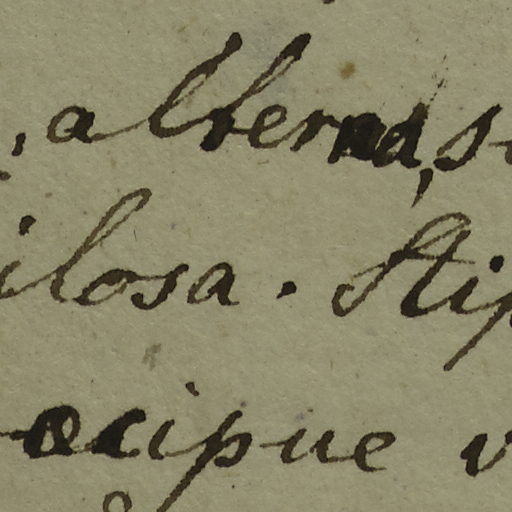 , alterna, s
ilosa. Stip
æcipue v